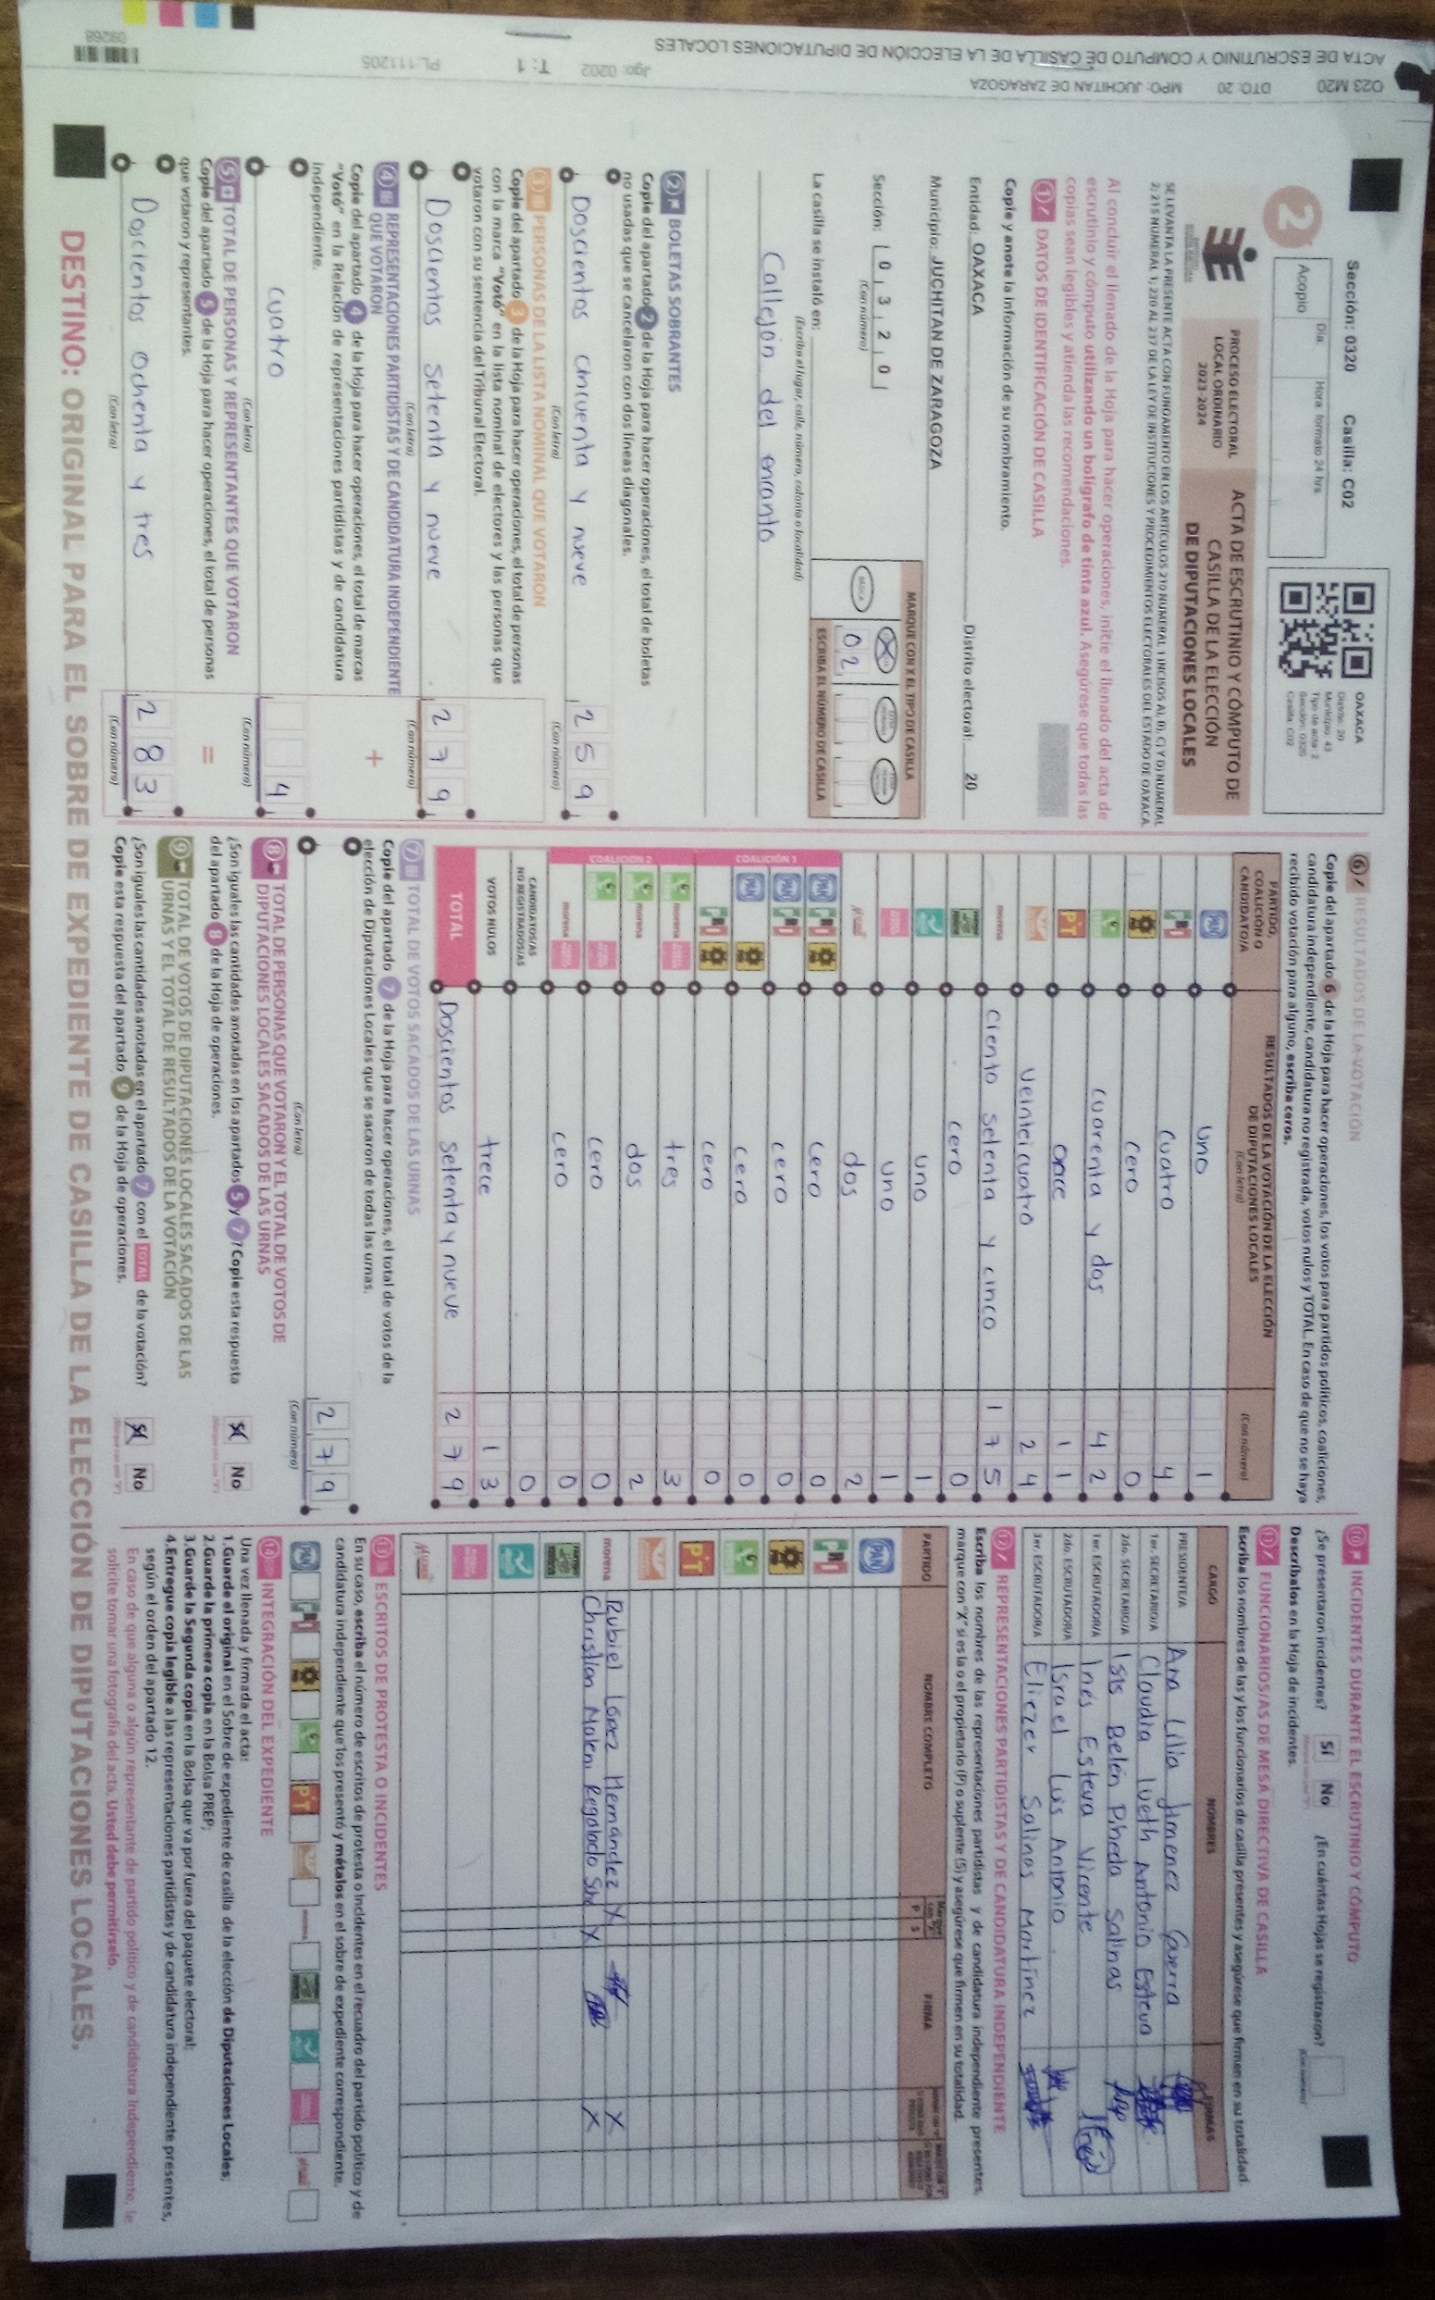 Sección: 0320 Casilla: C02
2
Acopio
Día
Hora formato 24 hrs
OAXACA
Distrito: 20
Municipio: 43
Tipo de acta: 2
Sección: 0320
Casilla: C02
PROCESO ELECTORAL
LOCAL ORDINARIO
2023-2024
ACTA DE ESCRUTINIO Y CÓMPUTO DE
CASILLA DE LA ELECCIÓN
DE DIPUTACIONES LOCALES
SE LEVANTA LA PRESENTE ACTA CON FUNDAMENTO EN LOS ARTÍCULOS 210 NUMERAL 1 INCISOS A), B), C) Y D) NUMERAL
2; 215 NUMERAL 1; 230 AL 237 DE LA LEY DE INSTITUCIONES Y PROCEDIMIENTOS ELECTORALES DEL ESTADO DE OAXACA.
Al concluir el llenado de la Hoja para hacer operaciones, inicie el llenado del acta de
escrutinio y cómputo utilizando un bolígrafo de tinta azul. Asegúrese que todas las
copias sean legibles y atienda las recomendaciones.
1 DATOS DE IDENTIFICACIÓN DE CASILLA
Copie y anote la información de su nombramiento.
Entidad: OAXACA Distrito electoral: 20
Municipio: JUCHITAN DE ZARAGOZA
Sección: 0 3 2 0
(Con número)
MARQUE CON X EL TIPO DE CASILLA
BÁSICA
X
02
ESCRIBA EL NÚMERO DE CASILLA
La casilla se instaló en:
(Escriba el lugar, calle, número, colonia o localidad)
Callejón del encanto
2 BOLETAS SOBRANTES
Copie del apartado 2 de la Hoja para hacer operaciones, el total de boletas
no usadas que se cancelaron con dos líneas diagonales.
Doscientos cincuenta y nueve 2 5 9
(Con letra) (Con número)
3 PERSONAS DE LA LISTA NOMINAL QUE VOTARON
Copie del apartado 3 de la Hoja para hacer operaciones, el total de personas
con la marca "Votó" en la lista nominal de electores y las personas que
votaron con su sentencia del Tribunal Electoral.
Doscientos setenta y nueve 2 7 9
(Con letra) (Con número)
4 REPRESENTACIONES PARTIDISTAS Y DE CANDIDATURA INDEPENDIENTE
QUE VOTARON
+
Copie del apartado 4 de la Hoja para hacer operaciones, el total de marcas
"Votó" en la Relación de representaciones partidistas y de candidatura
independiente.
cuatro 4
(Con letra) (Con número)
5 TOTAL DE PERSONAS Y REPRESENTANTES QUE VOTARON
=
Copie del apartado 5 de la Hoja para hacer operaciones, el total de personas
que votaron y representantes.
Doscientos Ochenta y tres 2 8 3
(Con letra) (Con número)
6 RESULTADOS DE LA VOTACIÓN
Copie del apartado 6 de la Hoja para hacer operaciones, los votos para partidos políticos, coaliciones,
candidatura independiente, candidatura no registrada, votos nulos y TOTAL. En caso de que no se haya
recibido votación para alguno, escriba ceros.
PARTIDO,
COALICIÓN O
CANDIDATO/A
RESULTADOS DE LA VOTACIÓN DE LA ELECCIÓN
DE DIPUTACIONES LOCALES
(Con letra) (Con número)
PAN uno 1
PRI cuatro 4
cero 0
cuarenta y dos 4 2
PT once 1 1
veinteicuatro 2 4
morena ciento setenta y cinco 1 7 5
cero 0
uno 1
uno 1
dos 2
COALICIÓN 1
PAN PRI cero 0
PAN PRI cero 0
PAN cero 0
PRI cero 0
COALICIÓN 2
morena tres 3
morena dos 2
cero 0
morena cero 0
CANDIDATOS/AS
NO REGISTRADOS/AS 0
VOTOS NULOS trece 1 3
TOTAL Doscientos setenta y nueve 2 7 9
7 TOTAL DE VOTOS SACADOS DE LAS URNAS
Copie del apartado 7 de la Hoja para hacer operaciones, el total de votos de la
elección de Diputaciones Locales que se sacaron de todas las urnas.
2 7 9
(Con letra) (Con número)
8 TOTAL DE PERSONAS QUE VOTARON Y EL TOTAL DE VOTOS DE
DIPUTACIONES LOCALES SACADOS DE LAS URNAS
¿Son iguales las cantidades anotadas en los apartados 5 y 7? Copie esta respuesta
del apartado 8 de la Hoja de operaciones.
Sí No
9 TOTAL DE VOTOS DE DIPUTACIONES LOCALES SACADOS DE LAS
URNAS Y EL TOTAL DE RESULTADOS DE LA VOTACIÓN
¿Son iguales las cantidades anotadas en el apartado 7 con el TOTAL de la votación?
Copie esta respuesta del apartado 9 de la Hoja de operaciones.
Sí No
10 INCIDENTES DURANTE EL ESCRUTINIO Y CÓMPUTO
¿Se presentaron incidentes? Sí No ¿En cuántas Hojas se registraron?
(Con número)
Descríbalos en la Hoja de incidentes.
11 FUNCIONARIOS/AS DE MESA DIRECTIVA DE CASILLA
Escriba los nombres de las y los funcionarios de casilla presentes y asegúrese que firmen en su totalidad.
CARGO NOMBRES FIRMAS
PRESIDENTE/A Ana Lilia Jimenez Guerra
1er. SECRETARIO/A Claudia Iveth Antonio Esteva
2do. SECRETARIO/A Isis Belén Pineda Salinas
1er. ESCRUTADOR/A Inés Esteva Vicente
2do. ESCRUTADOR/A Israel Luis Antonio
3er. ESCRUTADOR/A Eliezer Salinas Martínez
12 REPRESENTACIONES PARTIDISTAS Y DE CANDIDATURA INDEPENDIENTE
Escriba los nombres de las representaciones partidistas y de candidatura independiente presentes,
marque con "X" si es la o el propietario (P) o suplente (S) y asegúrese que firmen en su totalidad.
PARTIDO NOMBRE COMPLETO P S FIRMA
PAN
PRI
PT
morena Rubiel López Hernández X X
Christian Nolen Regalado X X
13 ESCRITOS DE PROTESTA O INCIDENTES
En su caso, escriba el número de escritos de protesta o incidentes en el recuadro del partido político y de
candidatura independiente que los presentó y métalos en el sobre de expediente correspondiente.
PAN PRI PT
14 INTEGRACIÓN DEL EXPEDIENTE
Una vez llenada y firmada el acta:
1.Guarde el original en el Sobre de expediente de casilla de la elección de Diputaciones Locales;
2.Guarde la primera copia en la Bolsa PREP;
3.Guarde la Segunda copia en la Bolsa que va por fuera del paquete electoral;
4.Entregue copia legible a las representaciones partidistas y de candidatura independiente presentes,
según el orden del apartado 12.
En caso de que alguna o algún representante de partido político y de candidatura independiente, le
solicite tomar una fotografía del acta, Usted debe permitírselo.
DESTINO: ORIGINAL PARA EL SOBRE DE EXPEDIENTE DE CASILLA DE LA ELECCIÓN DE DIPUTACIONES LOCALES.
O23 M20 DTO: 20 MPO: JUCHITAN DE ZARAGOZA
ACTA DE ESCRUTINIO Y COMPUTO DE CASILLA DE LA ELECCIÓN DE DIPUTACIONES LOCALES
Jgo: 0202 T: 1 PL:111205
09268